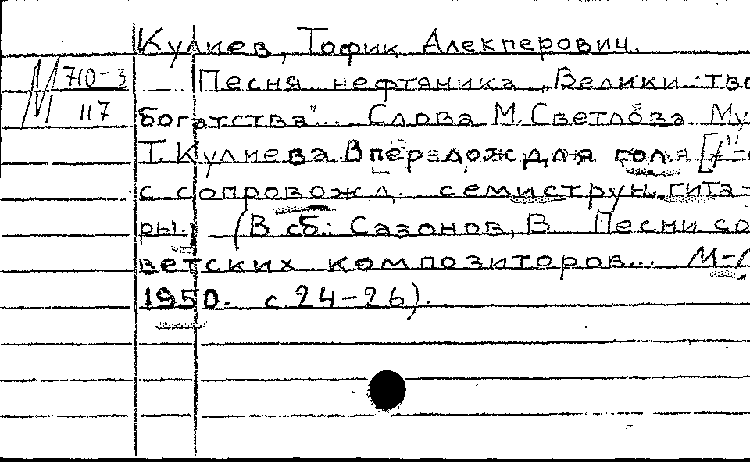 Кулиев, Тофик Алекперович.
М 710-3
117
Песня нефтяника „Велики тво
богатства"... Слова М. Светлова Му
Т. Кулиева В перелож для голоса
с сопровожд. семиструн. гита-
ры. (В сб.: Сазонов, В. Песни со
ветских композиторов... М-Л
1950. с 24-26).